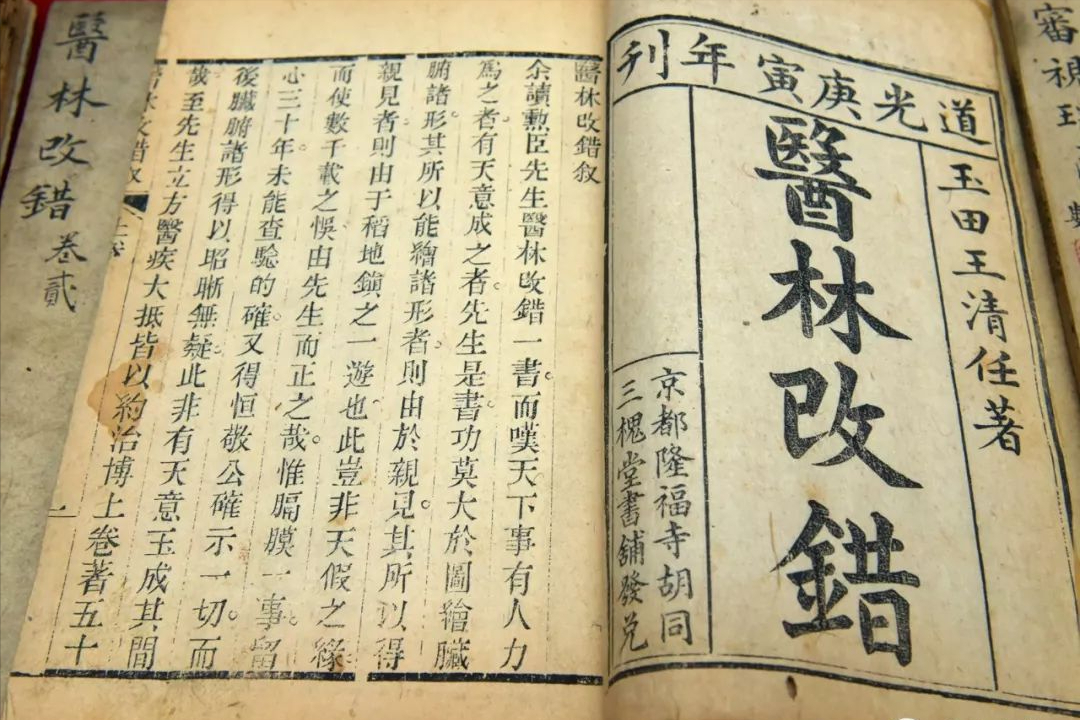 道光庚寅年刊
玉田王清任著
醫林改錯
京都隆福寺胡同
三槐堂書舖發兌
醫林改錯叙
余讀勲臣先生醫林改錯一書。而嘆天下事有人力
為之者。有天意成之者。先生是書。功莫大於圖繪臟
腑諸形。其所以能繪諸形者。則由於親見。其所以得
親見者。則由于稻地鎮之一遊也。此豈非天假之緣
而使數千載之悞。由先生而正之哉。惟膈膜一事。留
心三十年。未能查驗的確。又得恒敬公確示一切。而
後臟腑諸形得以昭晰無疑。此非有天意玉成其間
哉。至先生立方醫疾。大抵皆以約治博。上卷著五十
林改錯叙
一
醫林改錯 卷貳